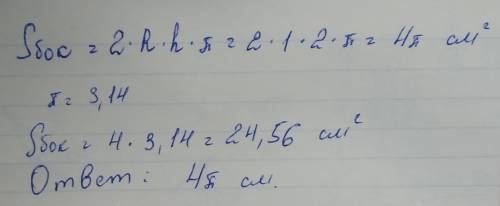 Sбок = 2·R·h·π = 2·1·2·π = 4π см²
π = 3,14
Sбок = 4·3,14 = 24,56 см²
Ответ: 4π см.